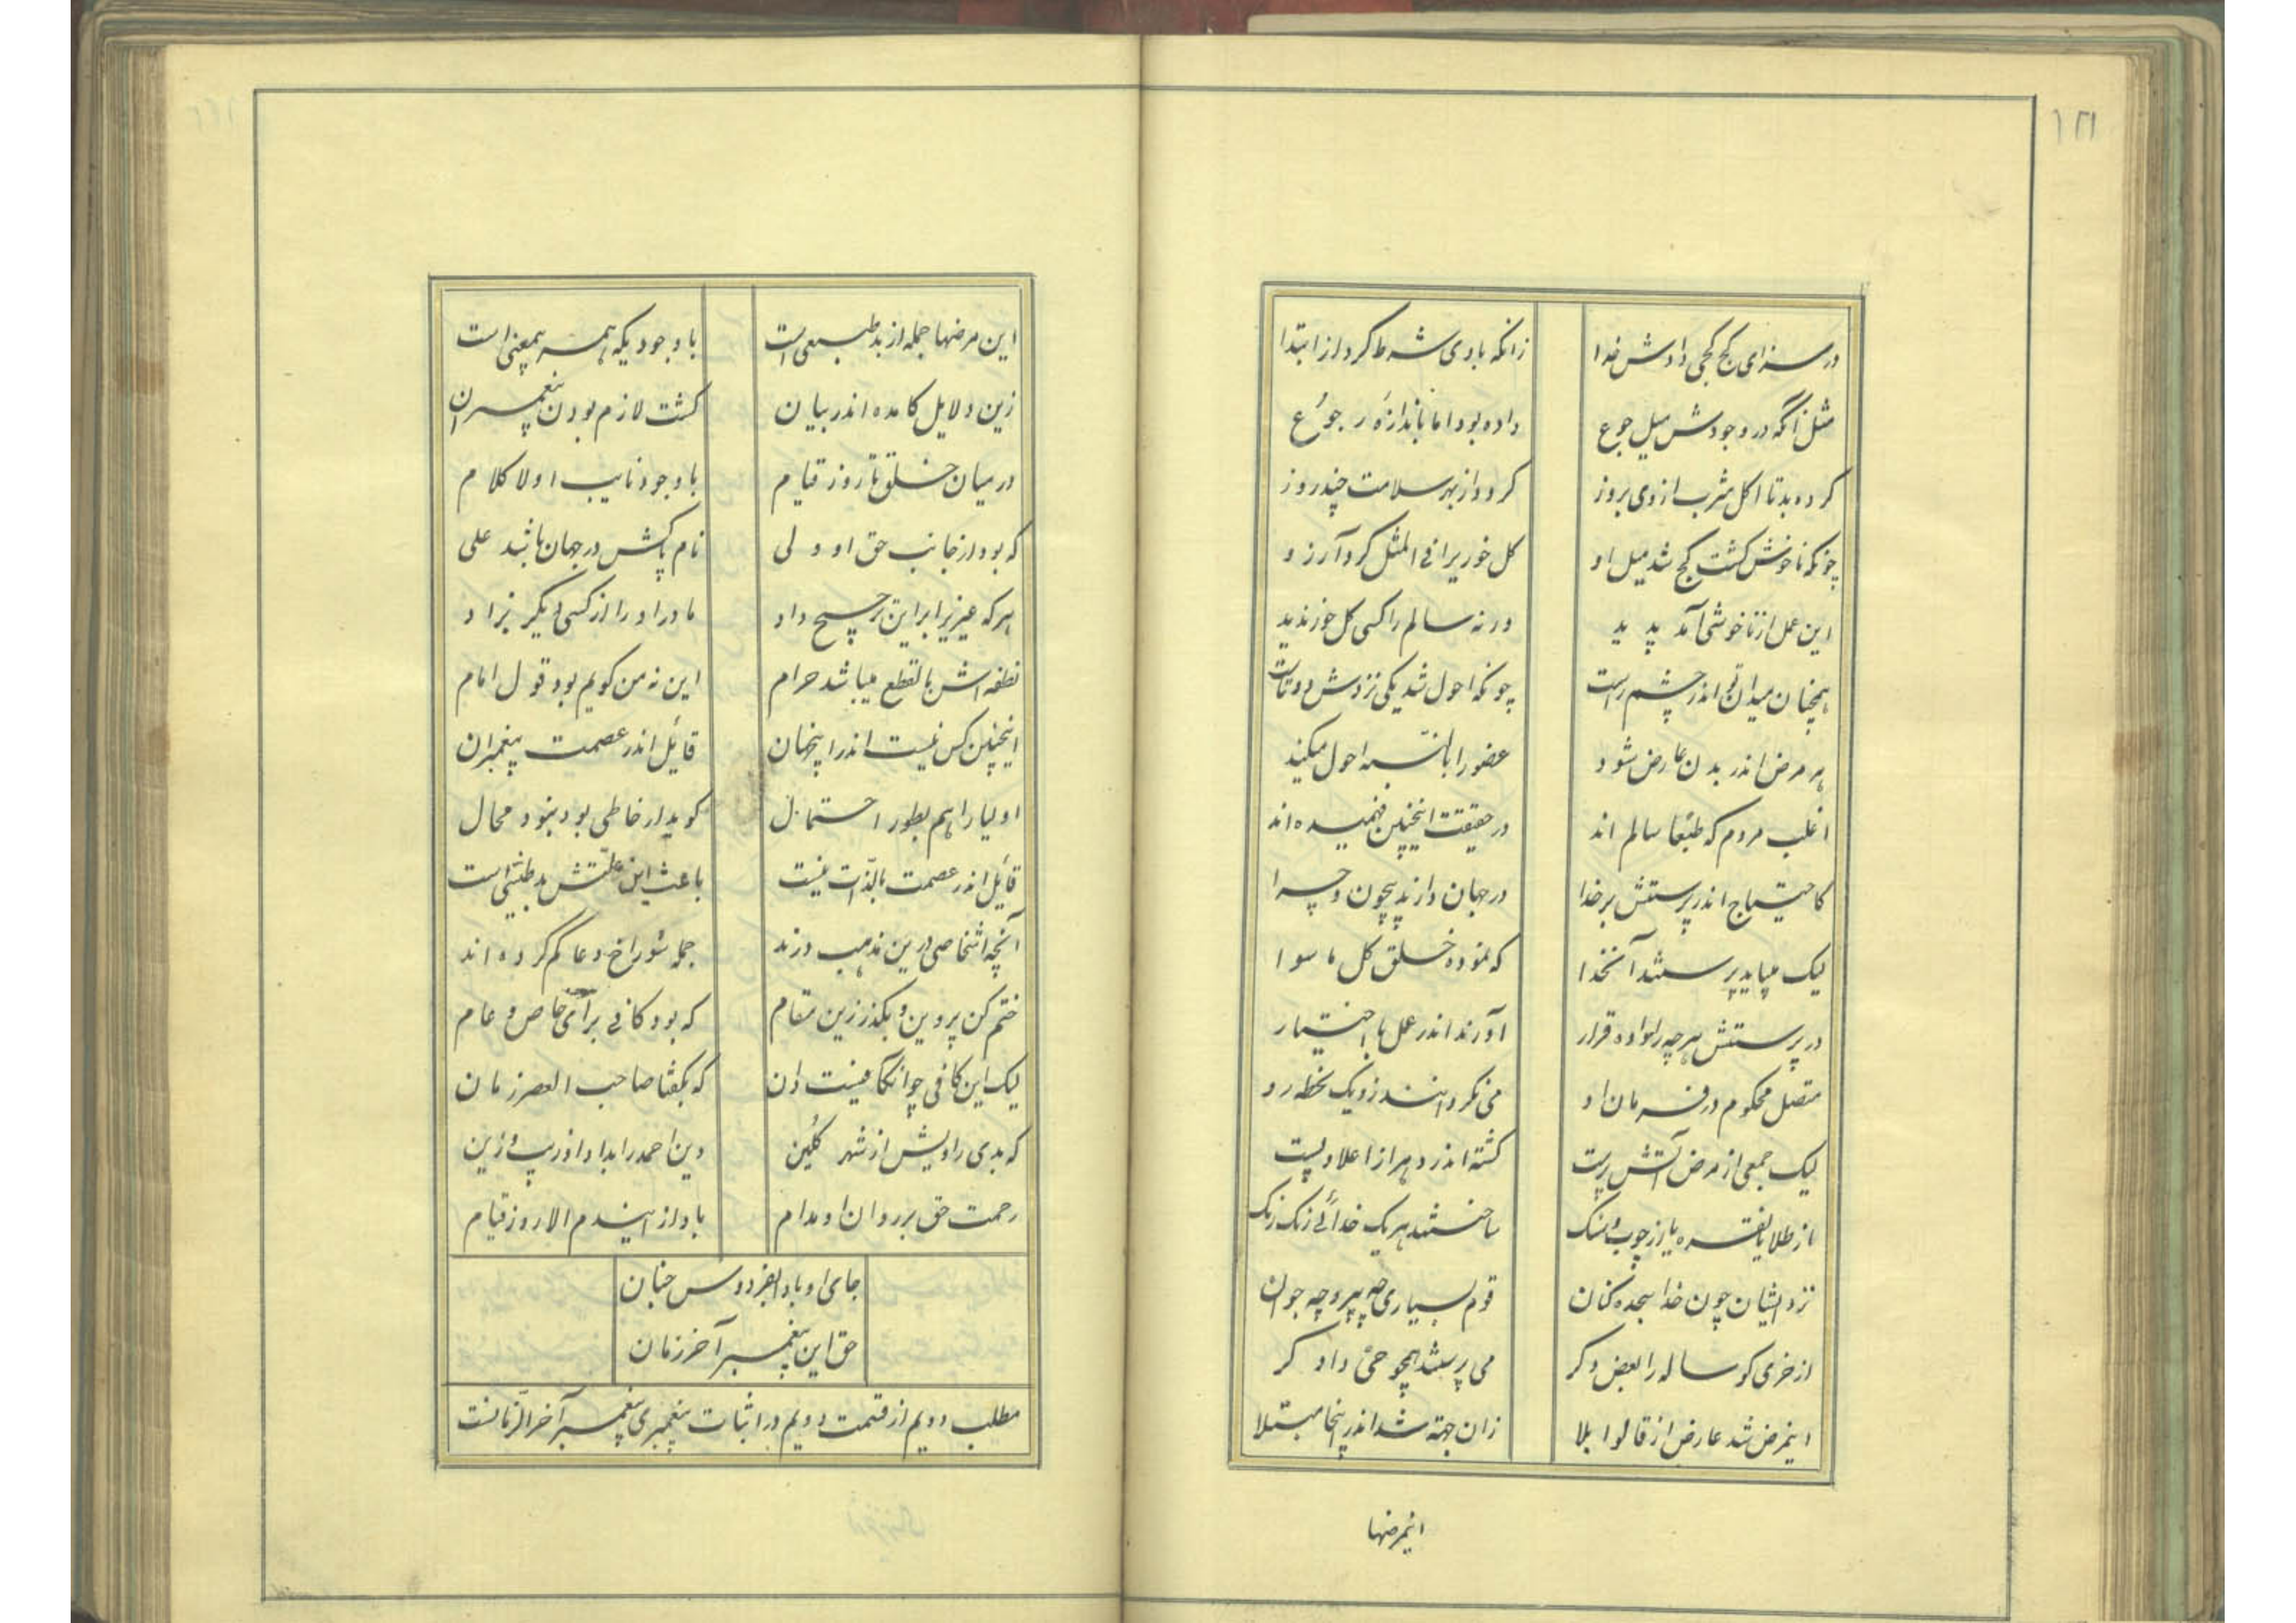 ۱۲۱
در سزای کج کجی دادش خدا زانکه باوی شرط کرد از ابتدا
مثل آنگه در وجودش میل جوع داده بود اما باندازهٔ رجوع
کرده بد تا اکل شرب از وی بروز کرد و از بهر سلامت چند روز
چونکه ناخوش گشت کج شد میل او کل خوریرا فی المثل کرد آرزو
این عمل از ناخوشی آمد پدید ورنه سالم را کسی کل خور ندید
همچنان میدان تو اندر چشم راست چونکه احول شد یکی نزدش دوتاست
هر مرض اندر بدن عارض شود عضو را احول میکند
اغلب مردم که طبعا سالم اند در حقیقت اینچنین فهمیده اند
کاحتیاج اندر پرستش بر خدا در جهان دارند بیچون و چرا
لیک میباید پرستند آنخدا که نموده خلق کل ما سوا
در پرستش هر چه را داده قرار آورند اندر عمل با اختیار
متصل محکوم در فرمان او می نگردانند زو یک لحظه رو
لیک جمعی از مرض آتش پرست گشته اندر دهر از اعلا و پست
از طلا یا نقره یا از چوب و سنک ساختند هریک خدائی رنک رنک
نزد ایشان چون خدا سجده کنان قوم بسیاری چه پیر و چه جوان
از خری کوساله را بعض دکر می پرستند همچو حی دادکر
اینمرض شد عارض از قالوا بلا زان جهته شد اندر اینجا مبتلا
اینمرضها
این مرضها جمله از بد طبعی است باوجودیکه همه بمعنی است
زین دلایل کامده اندر بیان کشت لازم بودن پیغمبران
در میان خلق تا روز قیام با وجود نایب او لا کلام
که بود از جانب حق او ولی نام پاکش در جهان باشد علی
هر که غیریرا براین ترجیح داد مادر او را از کسی دیگر بزاد
نطفه اش بالقطع میباشد حرام این نه من کویم بود قول امام
اینچنین کس نیست اندر اینجهان قائل اندر عصمت پیغمبران
اولیا را هم بطور احتمال کوید ار خاطی بود نبود محال
قائل اندر عصمت بالذات نیست باعث این علتش بد طینتی است
آنچه اشخاصی درین مذهب درند جمله سوراخ دعا کم کرده اند
ختم کن پروین و بکذر زین مقام که بود کافی برای خاص و عام
لیک این کافی چو آن کافیست دان که بکفتا صاحب العصر زمان
که بدی راویش از شهر کلین دین احمد را بداد او زیب و زین
رحمت حق بر روان او مدام باد از ایندم الا روز قیام
جای او بادا بفردوس جنان
حق این پیغمبر آخر زمان
مطلب دویم از قسمت دویم در اثبات پیغمبری پیغمبر آخر الزمانست